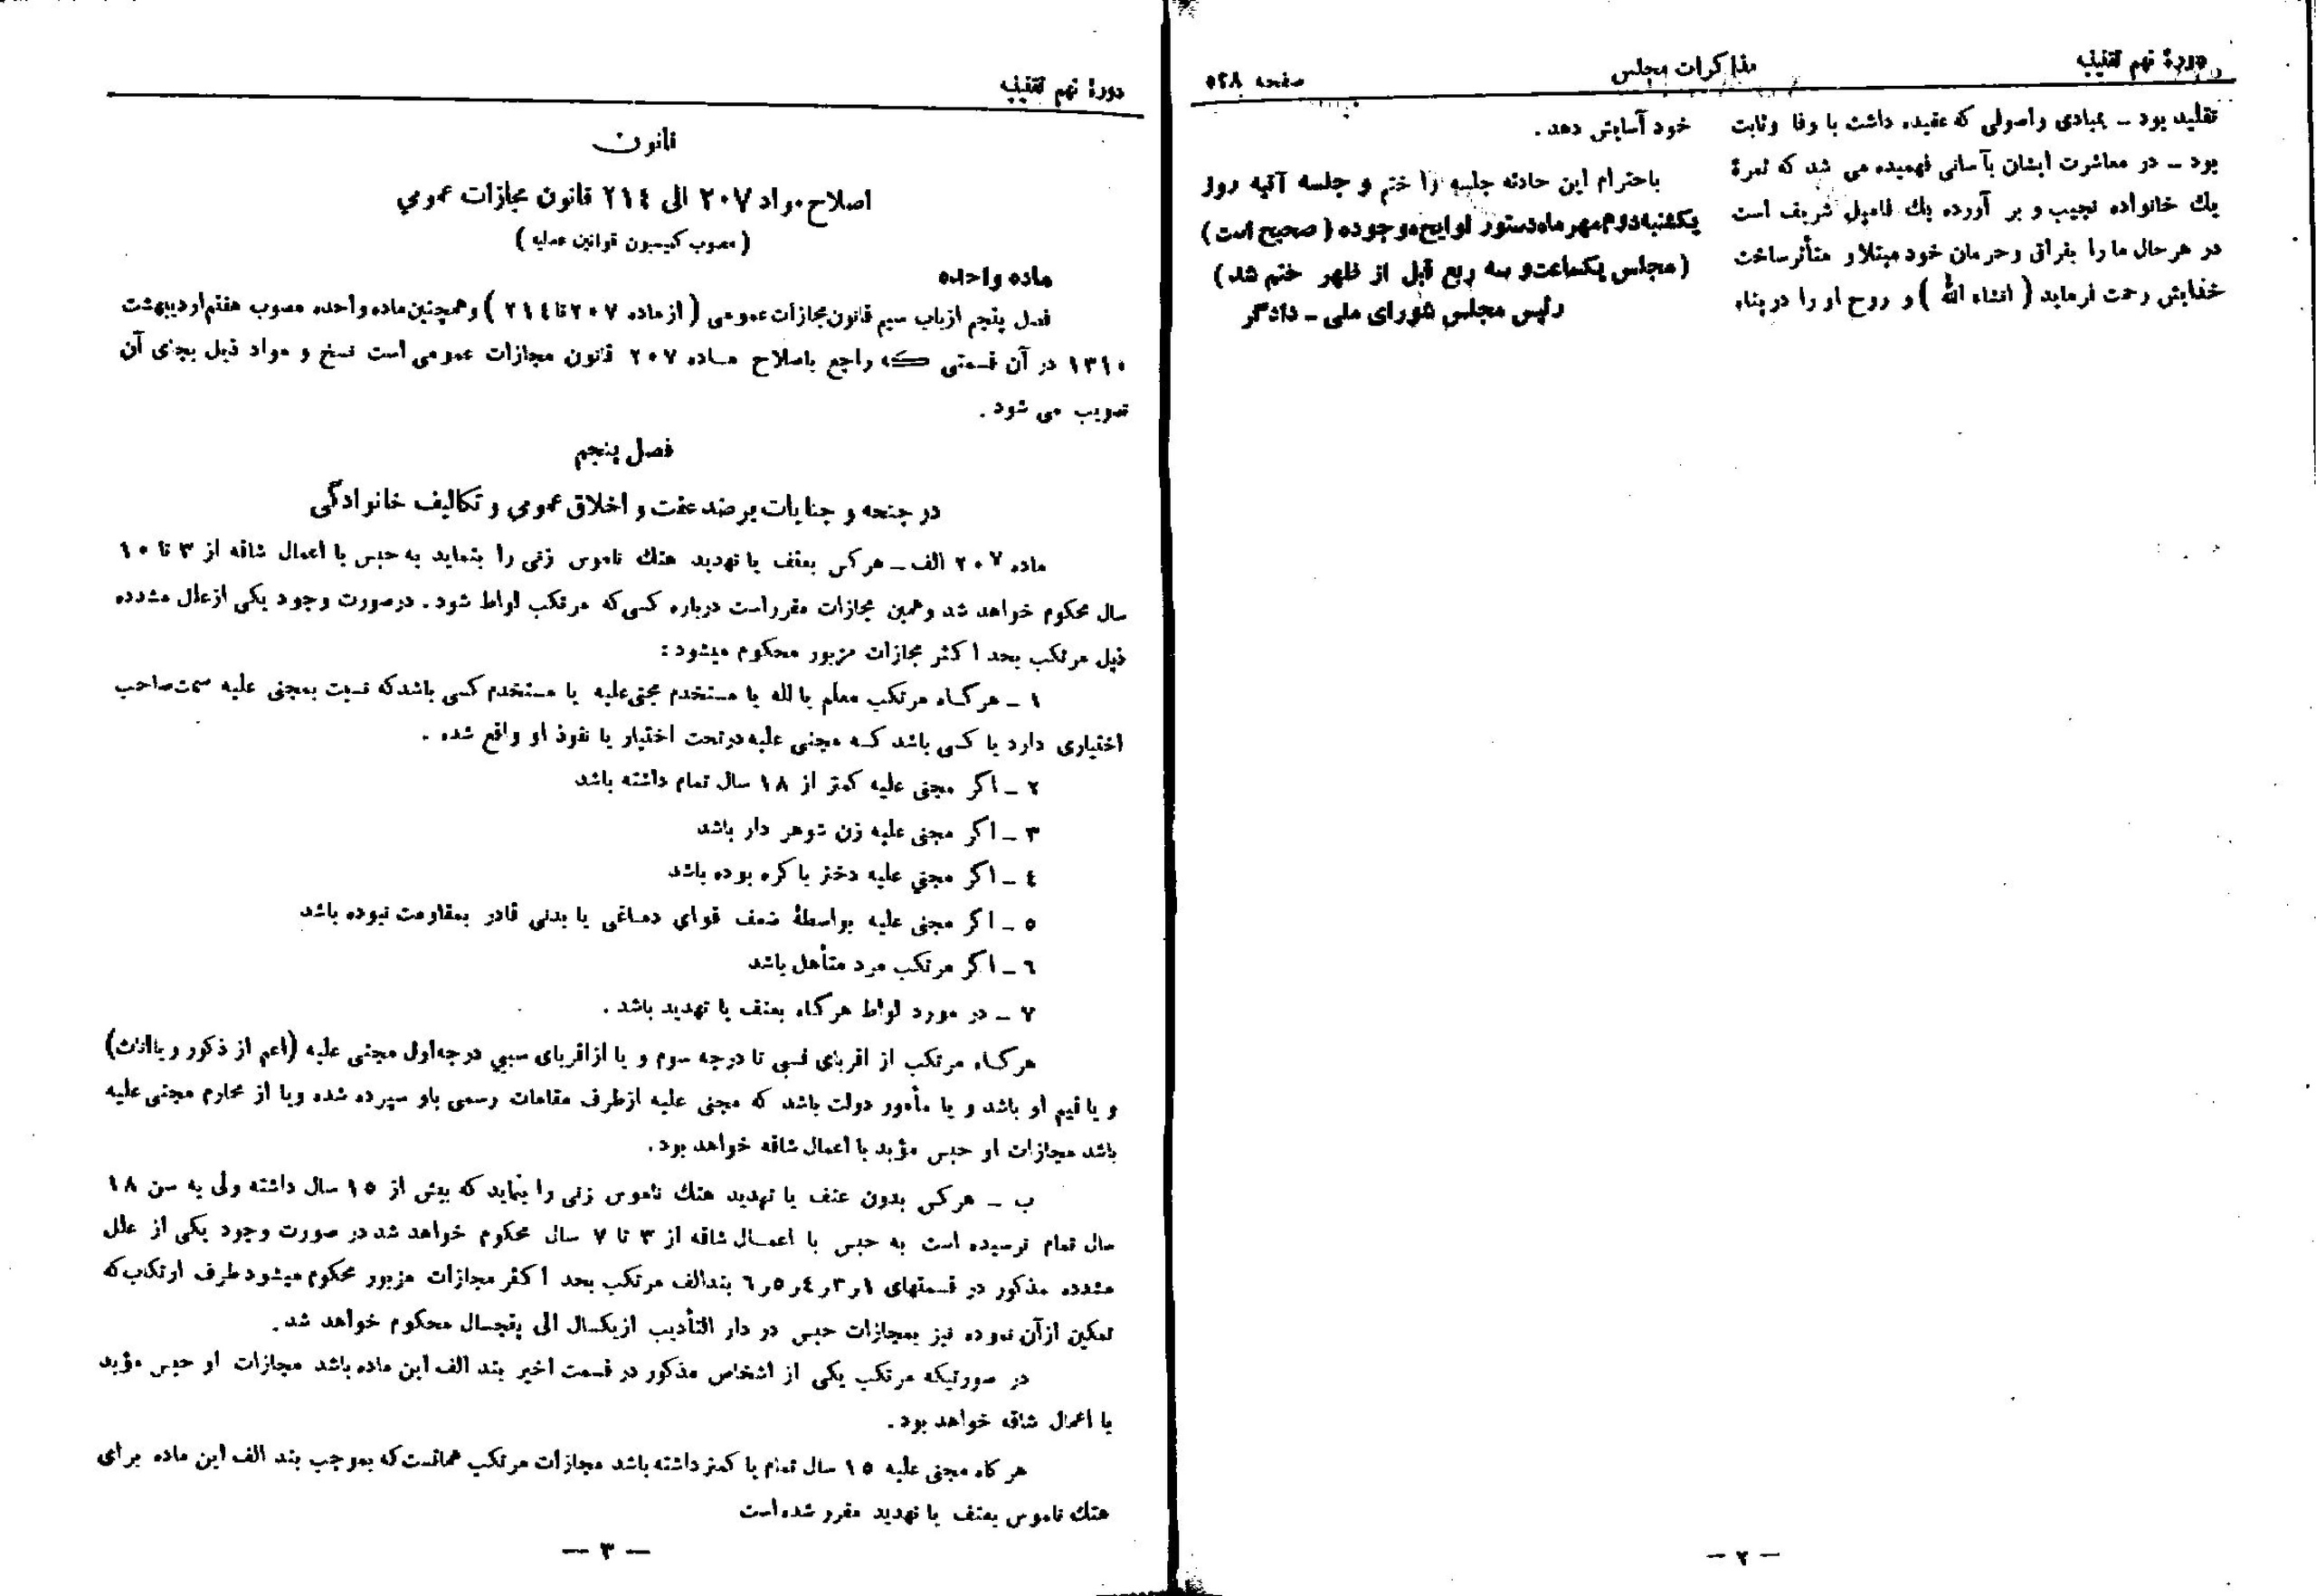 دورهٔ نهم تقنینیه
مذاکرات مجلس
صفحه ۵۲۸
تقلید بود ـ بمبادی و اصولی که عقیده داشت با وفا و ثابت
بود ـ در معاشرت ایشان بآسانی فهمیده می شد که ثمرهٔ
یك خانواده نجیب و بر آورده یك فامیل شریف است
در هرحال ما را بفراق و حرمان خود مبتلا و متأثر ساخت
خدایش رحمت فرماید ( انشاء الله ) و روح او را در پناه
خود آسایش دهد .
باحترام این حادثه جلسه را ختم و جلسه آتیه روز
یکشنبه دوم مهر ماه دستور لوایح موجوده ( صحیح است )
( مجلس یکساعت و سه ربع قبل از ظهر ختم شد )
رئیس مجلس شورای ملی ـ دادگر
— ۲ —
دورهٔ نهم تقنینیه
قانون
اصلاح مواد ۲۰۷ الی ۲۱٤ قانون مجازات عمومی
( مصوب کمیسیون قوانین عدلیه )
ماده واحده
فصل پنجم از باب سیم قانون مجازات عمومی ( از ماده ۲۰۷ تا ۲۱٤ ) و همچنین ماده واحده مصوب هفتم اردیبهشت
۱۳۱۰ در آن قسمتی که راجع باصلاح ماده ۲۰۷ قانون مجازات عمومی است نسخ و مواد ذیل بجای آن
تصویب می شود .
فصل پنجم
در جنحه و جنایات بر ضد عفت و اخلاق عمومی و تکالیف خانوادگی
ماده ۲۰۷ الف ـ هر کس بعنف یا تهدید هتك ناموس زنی را بنماید به حبس با اعمال شاقه از ۳ تا ۱۰
سال محکوم خواهد شد و همین مجازات مقرر است درباره کسی که مرتکب لواط شود . در صورت وجود یکی از علل مشدده
ذیل مرتکب بحد اکثر مجازات مزبور محکوم میشود :
۱ ـ هر گاه مرتکب معلم یا لله یا مستخدم مجنی علیه یا مستخدم کسی باشد که نسبت بمجنی علیه سمت صاحب
اختیاری دارد یا کسی باشد که مجنی علیه در تحت اختیار یا نفوذ او واقع شده .
۲ ـ اگر مجنی علیه کمتر از ۱۸ سال تمام داشته باشد
۳ ـ اگر مجنی علیه زن شوهر دار باشد
٤ ـ اگر مجنی علیه دختر باکره بوده باشد
۵ ـ اگر مجنی علیه بواسطهٔ ضعف قوای دماغی یا بدنی قادر بمقاومت نبوده باشد
٦ ـ اگر مرتکب مرد متأهل باشد
۷ ـ در مورد لواط هر گاه بعنف یا تهدید باشد .
هر گاه مرتکب از اقربای نسبی تا درجه سوم و یا از اقربای سببی درجه اول مجنی علیه (اعم از ذکور و یا اناث)
و یا قیم او باشد و یا مأمور دولت باشد که مجنی علیه از طرف مقامات رسمی باو سپرده شده و یا از محارم مجنی علیه
باشد مجازات او حبس مؤبد با اعمال شاقه خواهد بود .
ب ـ هر کس بدون عنف یا تهدید هتك ناموس زنی را بنماید که بیش از ۱۵ سال داشته ولی به سن ۱۸
سال تمام نرسیده است به حبس با اعمال شاقه از ۳ تا ۷ سال محکوم خواهد شد در صورت وجود یکی از علل
مشدده مذکور در قسمتهای ۱ و ۳ و ٤ و ۵ و ٦ بند الف مرتکب بحد اکثر مجازات مزبور محکوم میشود طرف ارتکاب که
تمکین از آن نموده نیز بمجازات حبس در دار التأدیب از یکسال الی پنجسال محکوم خواهد شد .
در صورتیکه مرتکب یکی از اشخاص مذکور در قسمت اخیر بند الف این ماده باشد مجازات او حبس مؤبد
با اعمال شاقه خواهد بود .
هر گاه مجنی علیه ۱۵ سال تمام یا کمتر داشته باشد مجازات مرتکب همانست که بموجب بند الف این ماده برای
هتك ناموس بعنف یا تهدید مقرر شده است
— ۳ —